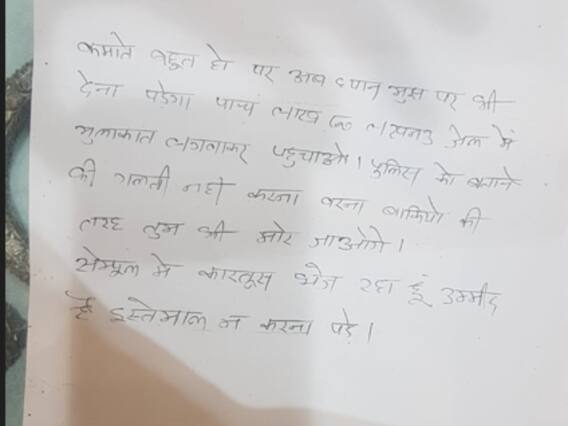 कमाते बहुत हो पर अब ध्यान मुझ पर भी
देना पड़ेगा पाच लाख रु० लखनउ जेल में
मुलाकात लगवाकर पहुचाओ। पुलिस को बताने
की गलती नही करना वरना बाकियो की
तरह तुम भी मारे जाओगे।
सेम्पल मे कारतूस भेज रहा हूं उम्मीद
है इस्तेमाल न करना पडे।